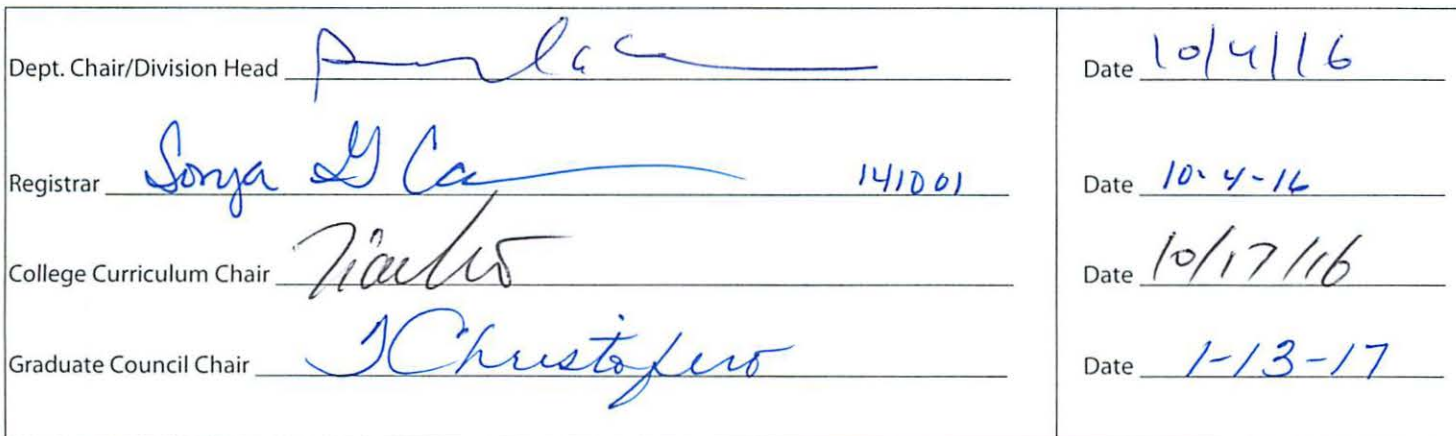 Dept. Chair/Division Head Date 10/4/16
Registrar Sonya G Ca 141001 Date 10-4-16
College Curriculum Chair Date 10/17/16
Graduate Council Chair TChristofero Date 1-13-17